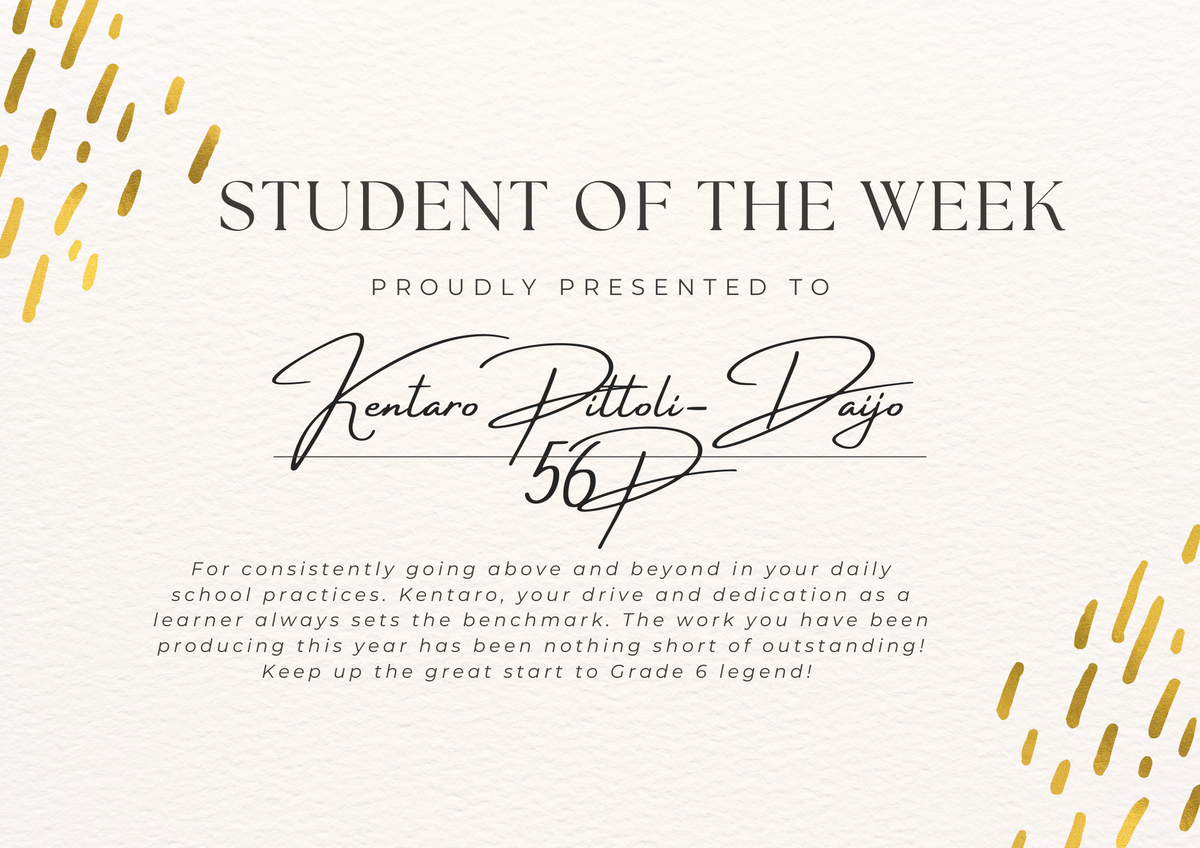 STUDENT OF THE WEEK
PROUDLY PRESENTED TO
Kentaro Pittoli- Daijo
56P
For consistently going above and beyond in your daily
school practices. Kentaro, your drive and dedication as a
learner always sets the benchmark. The work you have been
producing this year has been nothing short of outstanding!
Keep up the great start to Grade 6 legend!